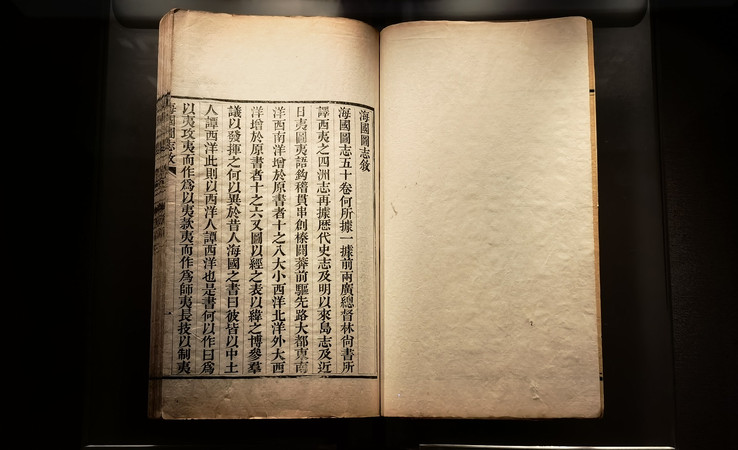 海國圖志敘
海國圖志五十卷何所據一據前兩廣總督林尙書所
譯西夷之四洲志再據歷代史志及明以來島志及近
日夷圖夷語鈎稽貫串創榛闢莽前驅先路大都東南
洋西南洋增於原書者十之八大小西洋北洋外大西
洋增於原書者十之六又圖以經之表以緯之博參羣
議以發揮之何以異於昔人海國之書曰彼皆以中土
人譚西洋此則以西洋人譚西洋也是書何以作曰爲
以夷攻夷而作爲以夷款夷而作爲師夷長技以制夷
海國圖志敘
一